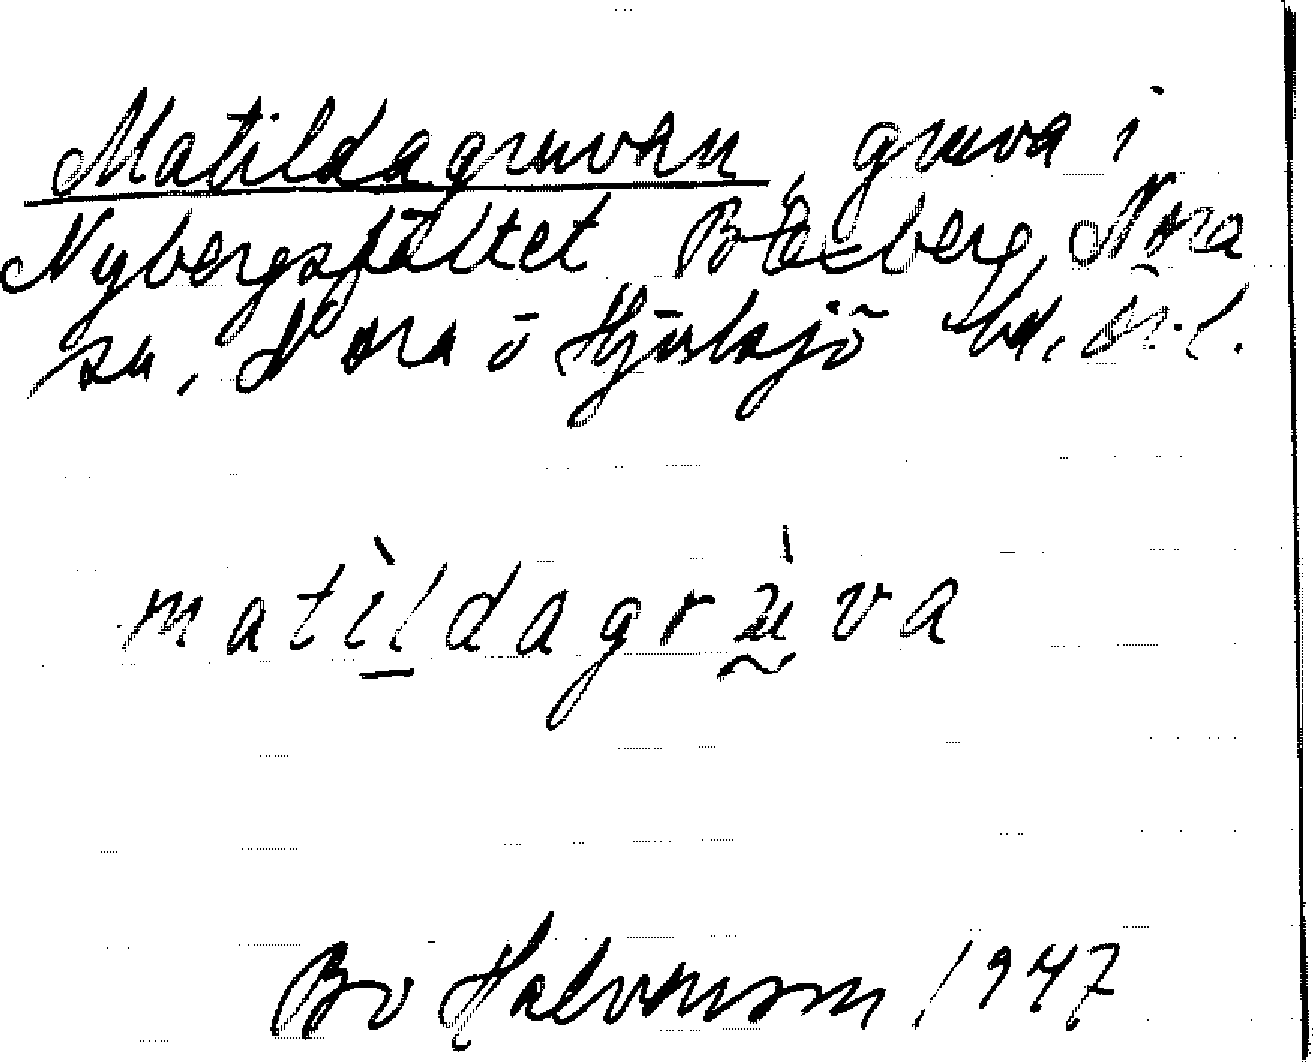 Matildagruvan, gruva i
Nybergsfältet Blexberg, Nora
sn, Nora o Hjulsjö bd, Ör. l.
matìldagrùva
Bo Halvarsson 1947